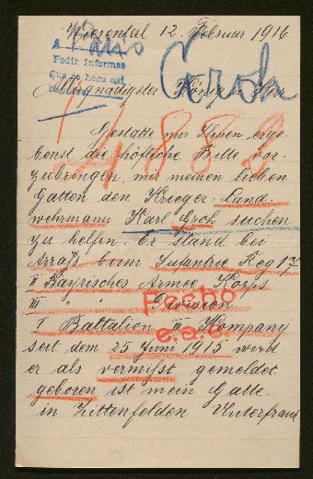 Wiesental 12. Februar 1916
Paris
Pedir informes
Que se hace así
Groh
Allergnädigster König u. Herr
14882
Gestatte mir Ihnen erge-
benst die höfliche Bitte vor-
zubringen, mir meinen lieben
Gatten den Krieger Land-
wehrmann Karl Groh suchen
zu helfen. Er stand bei
Arras beim Infanterie Reg 17
II Bayrisches Armee Korps
III " Division
Fecho
I Battalion III Kompany
e.a.a.
seit dem 25 Juni 1915 wird
er als vermißt gemeldet
geboren ist mein Gatte
in Zittenfelden Unterfrank